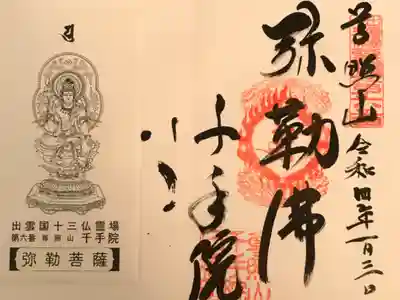 尊照山 令和四年一月三日
弥勒佛
千手院
出雲国十三仏霊場
第六番 尊照山 千手院
【弥勒菩薩】